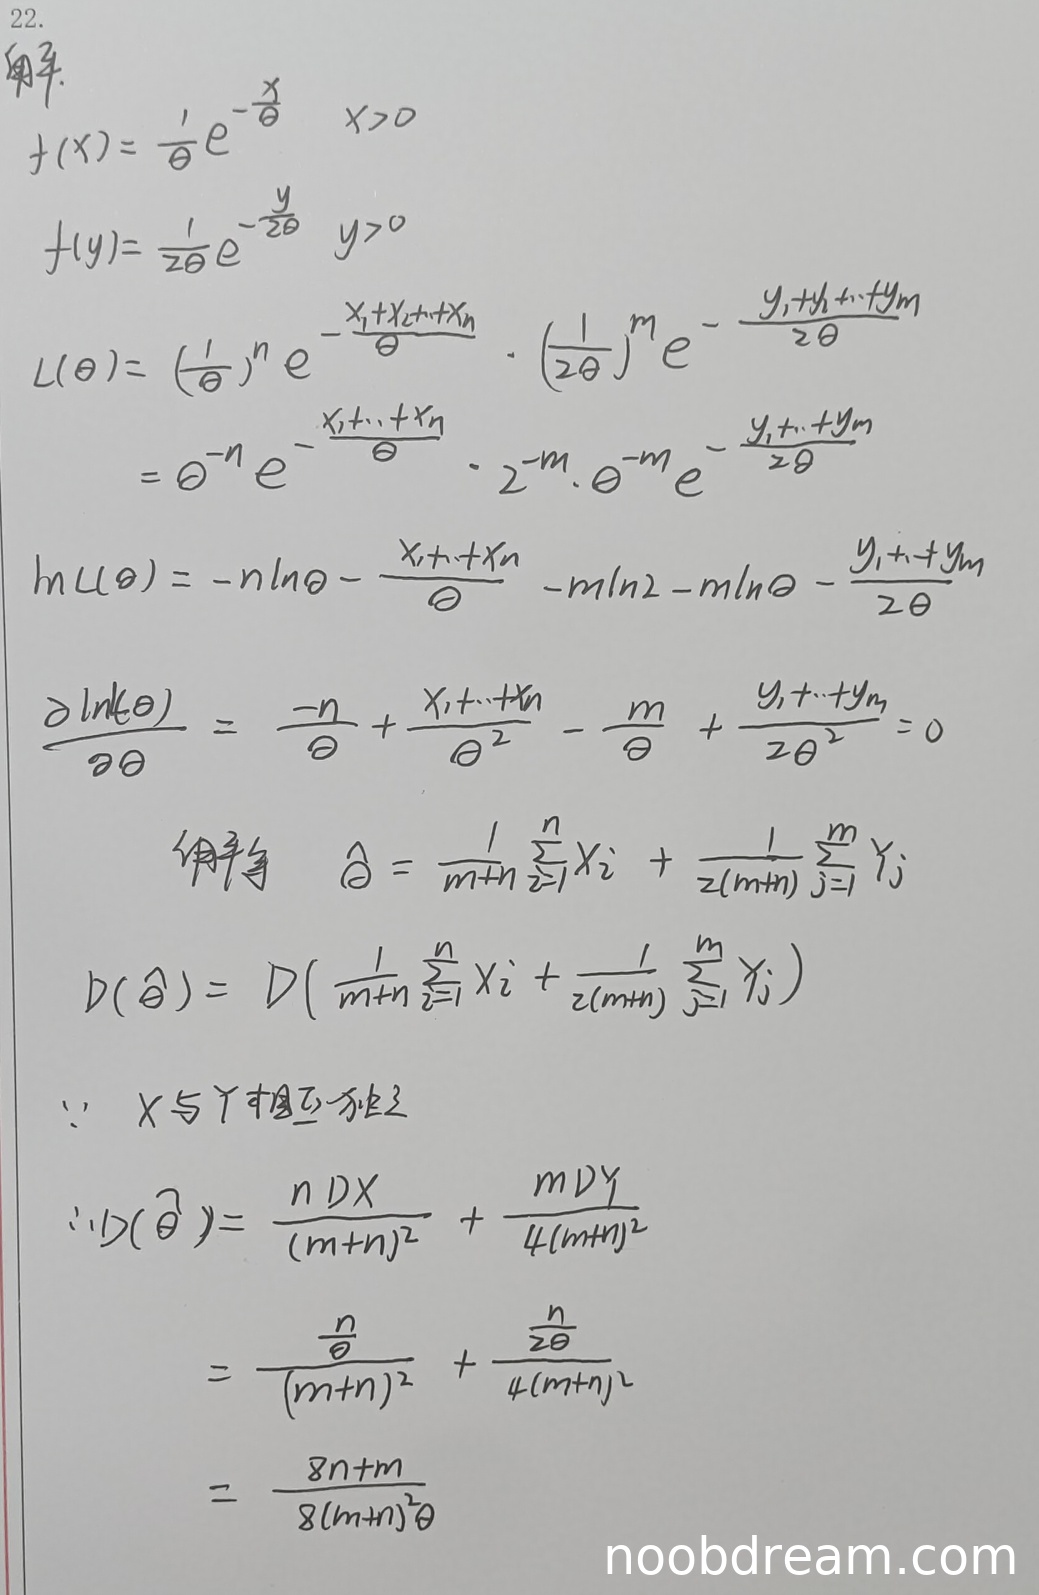 22.
解.
f(x) = \frac{1}{θ} e^{-\frac{x}{θ}} x>0
f(y) = \frac{1}{2θ} e^{-\frac{y}{2θ}} y>0
L(θ) = (\frac{1}{θ})^n e^{-\frac{x_1+x_2+..+x_n}{θ}} · (\frac{1}{2θ})^m e^{-\frac{y_1+y_2+..+y_m}{2θ}}
= θ^{-n} e^{-\frac{x_1+..+x_n}{θ}} · 2^{-m} · θ^{-m} e^{-\frac{y_1+..+y_m}{2θ}}
lnL(θ) = -nlnθ - \frac{x_1+..+x_n}{θ} - mln2 - mlnθ - \frac{y_1+..+y_m}{2θ}
\frac{∂lnL(θ)}{∂θ} = \frac{-n}{θ} + \frac{x_1+..+x_n}{θ^2} - \frac{m}{θ} + \frac{y_1+..+y_m}{2θ^2} = 0
解得 \hat{θ} = \frac{1}{m+n} \sum_{i=1}^{n} X_i + \frac{1}{2(m+n)} \sum_{j=1}^{m} Y_j
D(\hat{θ}) = D(\frac{1}{m+n} \sum_{i=1}^{n} X_i + \frac{1}{2(m+n)} \sum_{j=1}^{m} Y_j)
∵ X与Y相互独立
∴D(\hat{θ}) = \frac{nDX}{(m+n)^2} + \frac{mDY}{4(m+n)^2}
= \frac{\frac{n}{θ}}{(m+n)^2} + \frac{\frac{n}{2θ}}{4(m+n)^2}
= \frac{8n+m}{8(m+n)^2θ}
noobdream.com